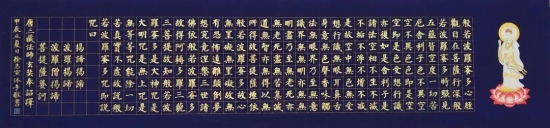 般若波羅蜜多心經
觀自在菩薩行深般
若波羅蜜多時照見
五蘊皆空度一切苦
厄舍利子色不異空
空不異色色即是空
空即是色受想行識
亦復如是舍利子是
諸法空相不生不滅
不垢不淨不增不減
是故空中無色無受
想行識無眼耳鼻舌
身意無色聲香味觸
法無眼界乃至無意
識界無無明亦無無
明盡乃至無老死亦
無老死盡無苦集滅
道無智亦無得以無
所得故菩提薩埵依
般若波羅蜜多故心
無罣礙無罣礙故無
有恐怖遠離顛倒夢
想究竟涅槃三世諸
佛依般若波羅蜜多
故得阿耨多羅三藐
三菩提故知般若波
羅蜜多是大神咒是
大明咒是無上咒是
無等等咒能除一切
苦真實不虛故說般
若波羅蜜多咒即說
咒曰
揭諦揭諦
波羅揭諦
波羅僧揭諦
菩提薩婆訶
唐三藏法師玄奘奉詔譯
沐手敬書